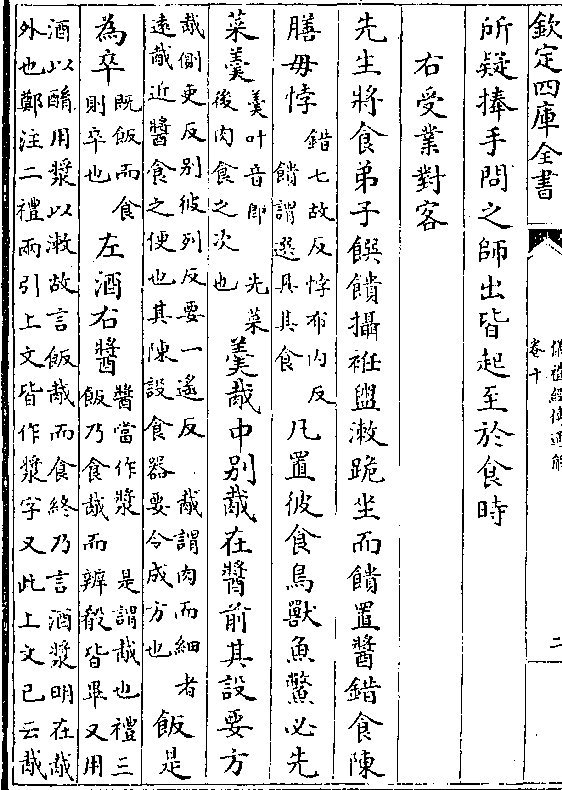 欽定四庫全書
儀禮經傳通解
卷十
二
所疑捧手問之師出皆起至於食時
右受業對客
先生將食弟子饌饋攝衽盥漱跪坐而饋置醬錯食陳
膳毋悖
錯七故反悖布内反
饋謂選具其食
凡置彼食鳥獸魚鼈必先
菜羹
羹叶音郎 先菜
後肉食之次也
羹胾中别胾在醬前其設要方
胾側吏反别彼列反要一遙反 胾謂肉而細者
遠胾近醬食之便也其陳設食器要令成方也
飯是
為卒
既飯而食
則卒也
左酒右醬
醬當作漿 是謂胾也禮三
飯乃食胾而辨殽皆畢又用
酒以酳用漿以漱故言飯胾而食終乃言酒漿明在胾
外也鄭注二禮兩引上文皆作漿字又此上文已云胾